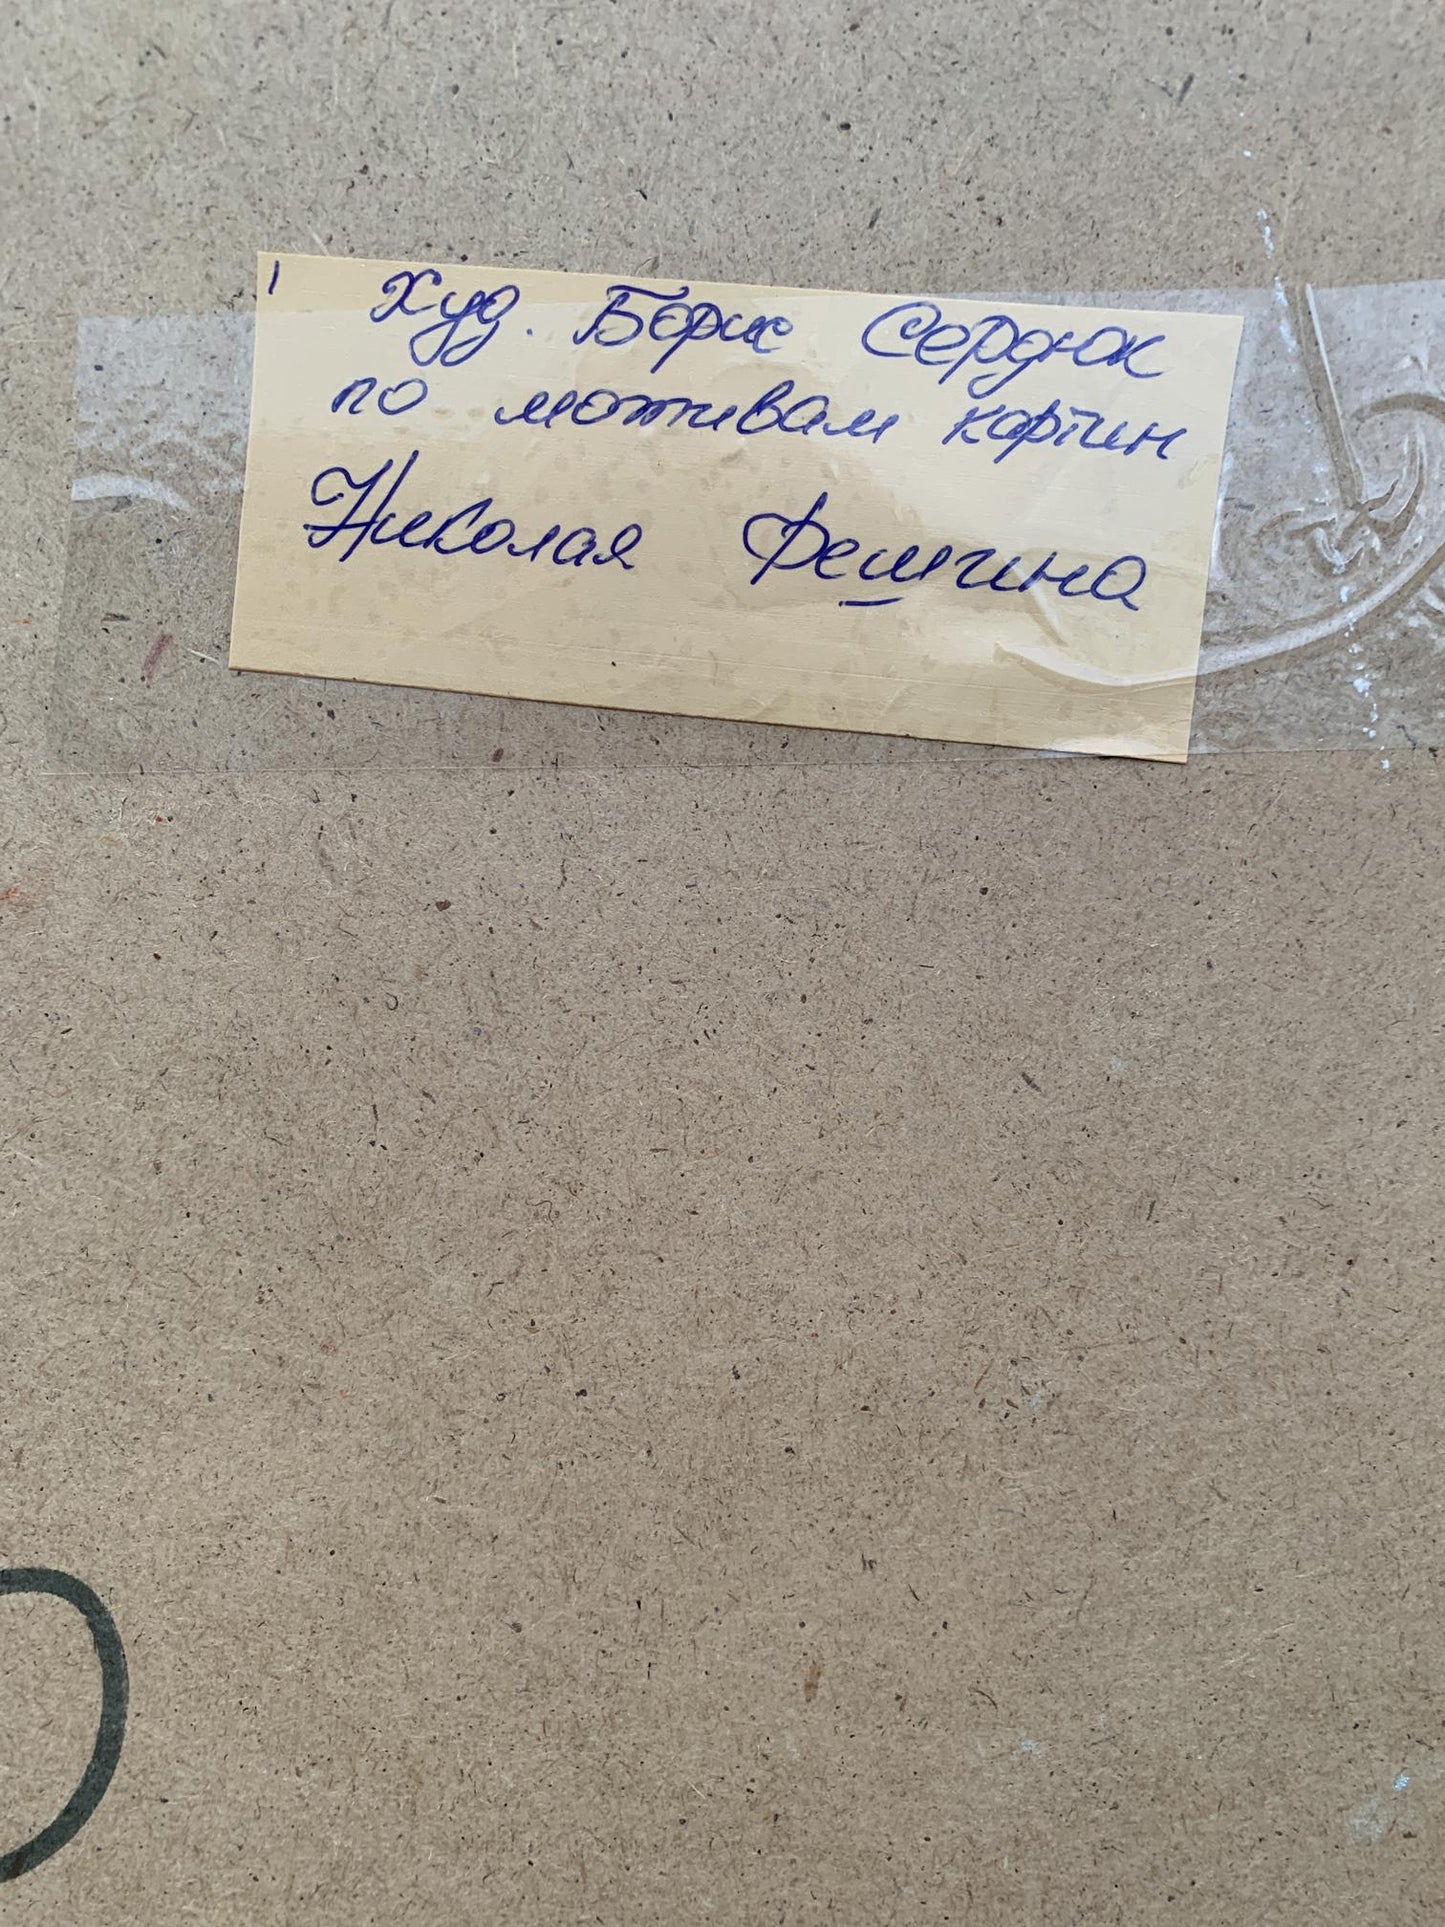 Худ. Борис Сердюк
по мотивам картин
Николая Фешина